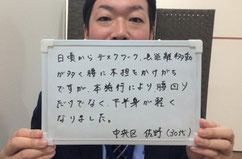 日頃からデスクワーク、長距離移動
が多く腰に不担をかけがち
ですが、本施術により腰回り
だけでなく、下半身が軽く
なりました。
中央区 佐野(30代)